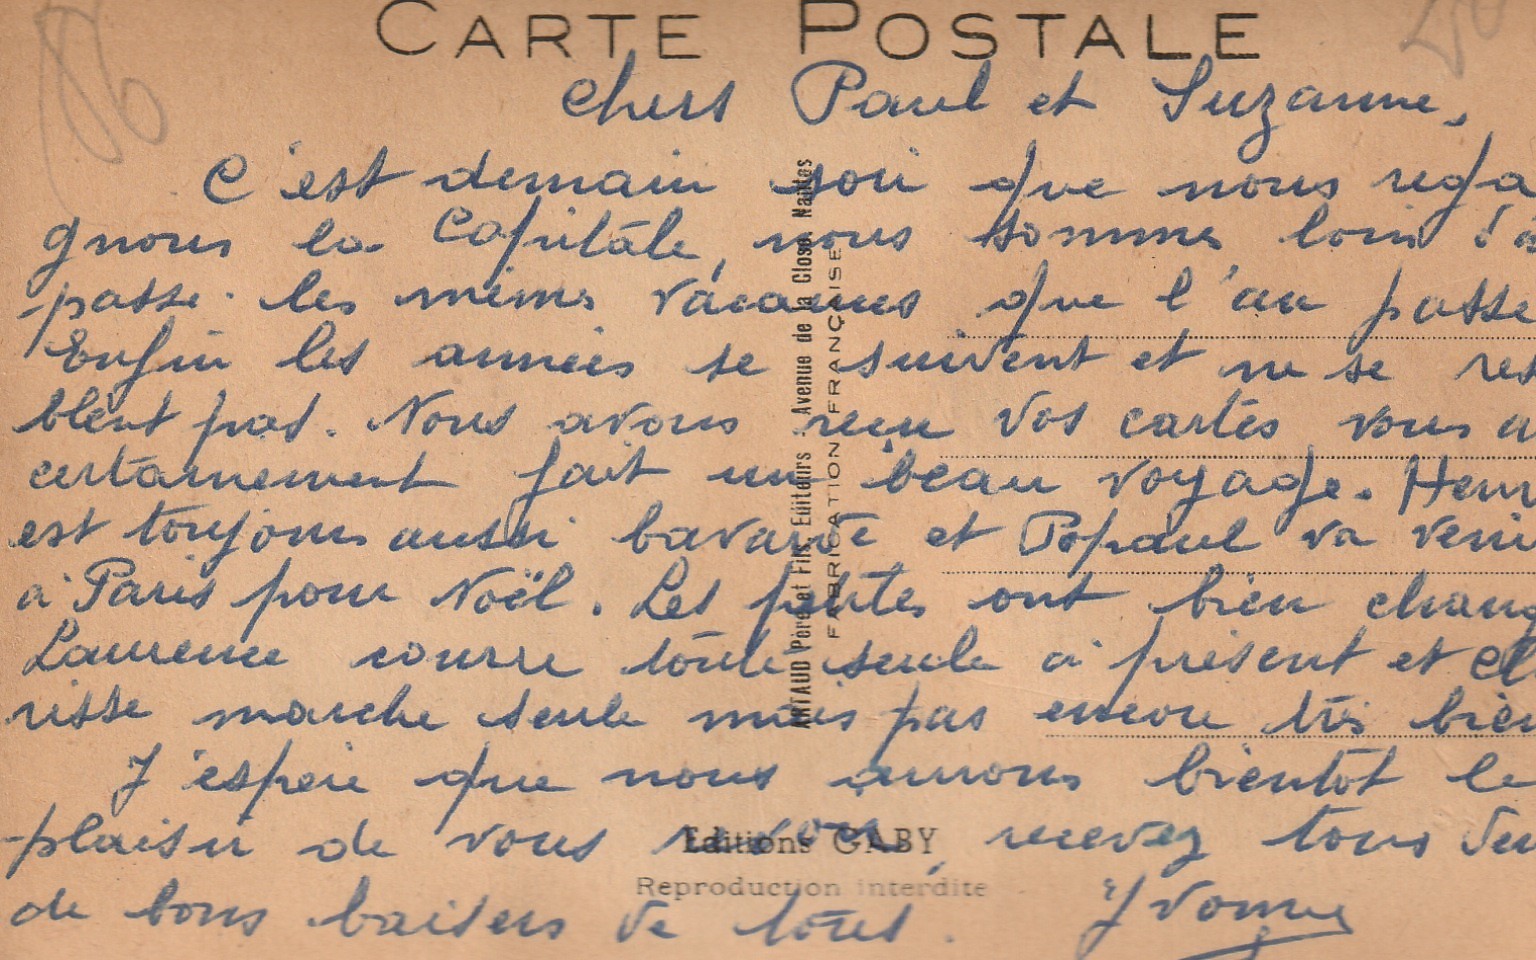 CARTE POSTALE
Chers Paul et Suzanne,
C'est demain soir que nous rega
gnons la Capitale, nous sommes loin d'a
passe. les mêmes vacances que l'an passe
Enfin les années se suivent et ne se res
blent pas. Nous avons reçu vos cartes vous a
certainement fait un beau voyage. Henr
est toujours aussi bavarde et Popaul va veni
à Paris pour Noël. Les petites ont bien chang
Laurence courre toute seule à présent et Cl
risse marche seule mais pas encore très bien
J'espère que nous aurons bientôt le
plaisir de vous revoir, recevez tous deu
de bons baisers de tous.
Yvonne
ARTAUD Père et Fils, Editeurs - Avenue de la Close Nantes
FABRICATION FRANÇAISE
Editions GABY
Reproduction interdite